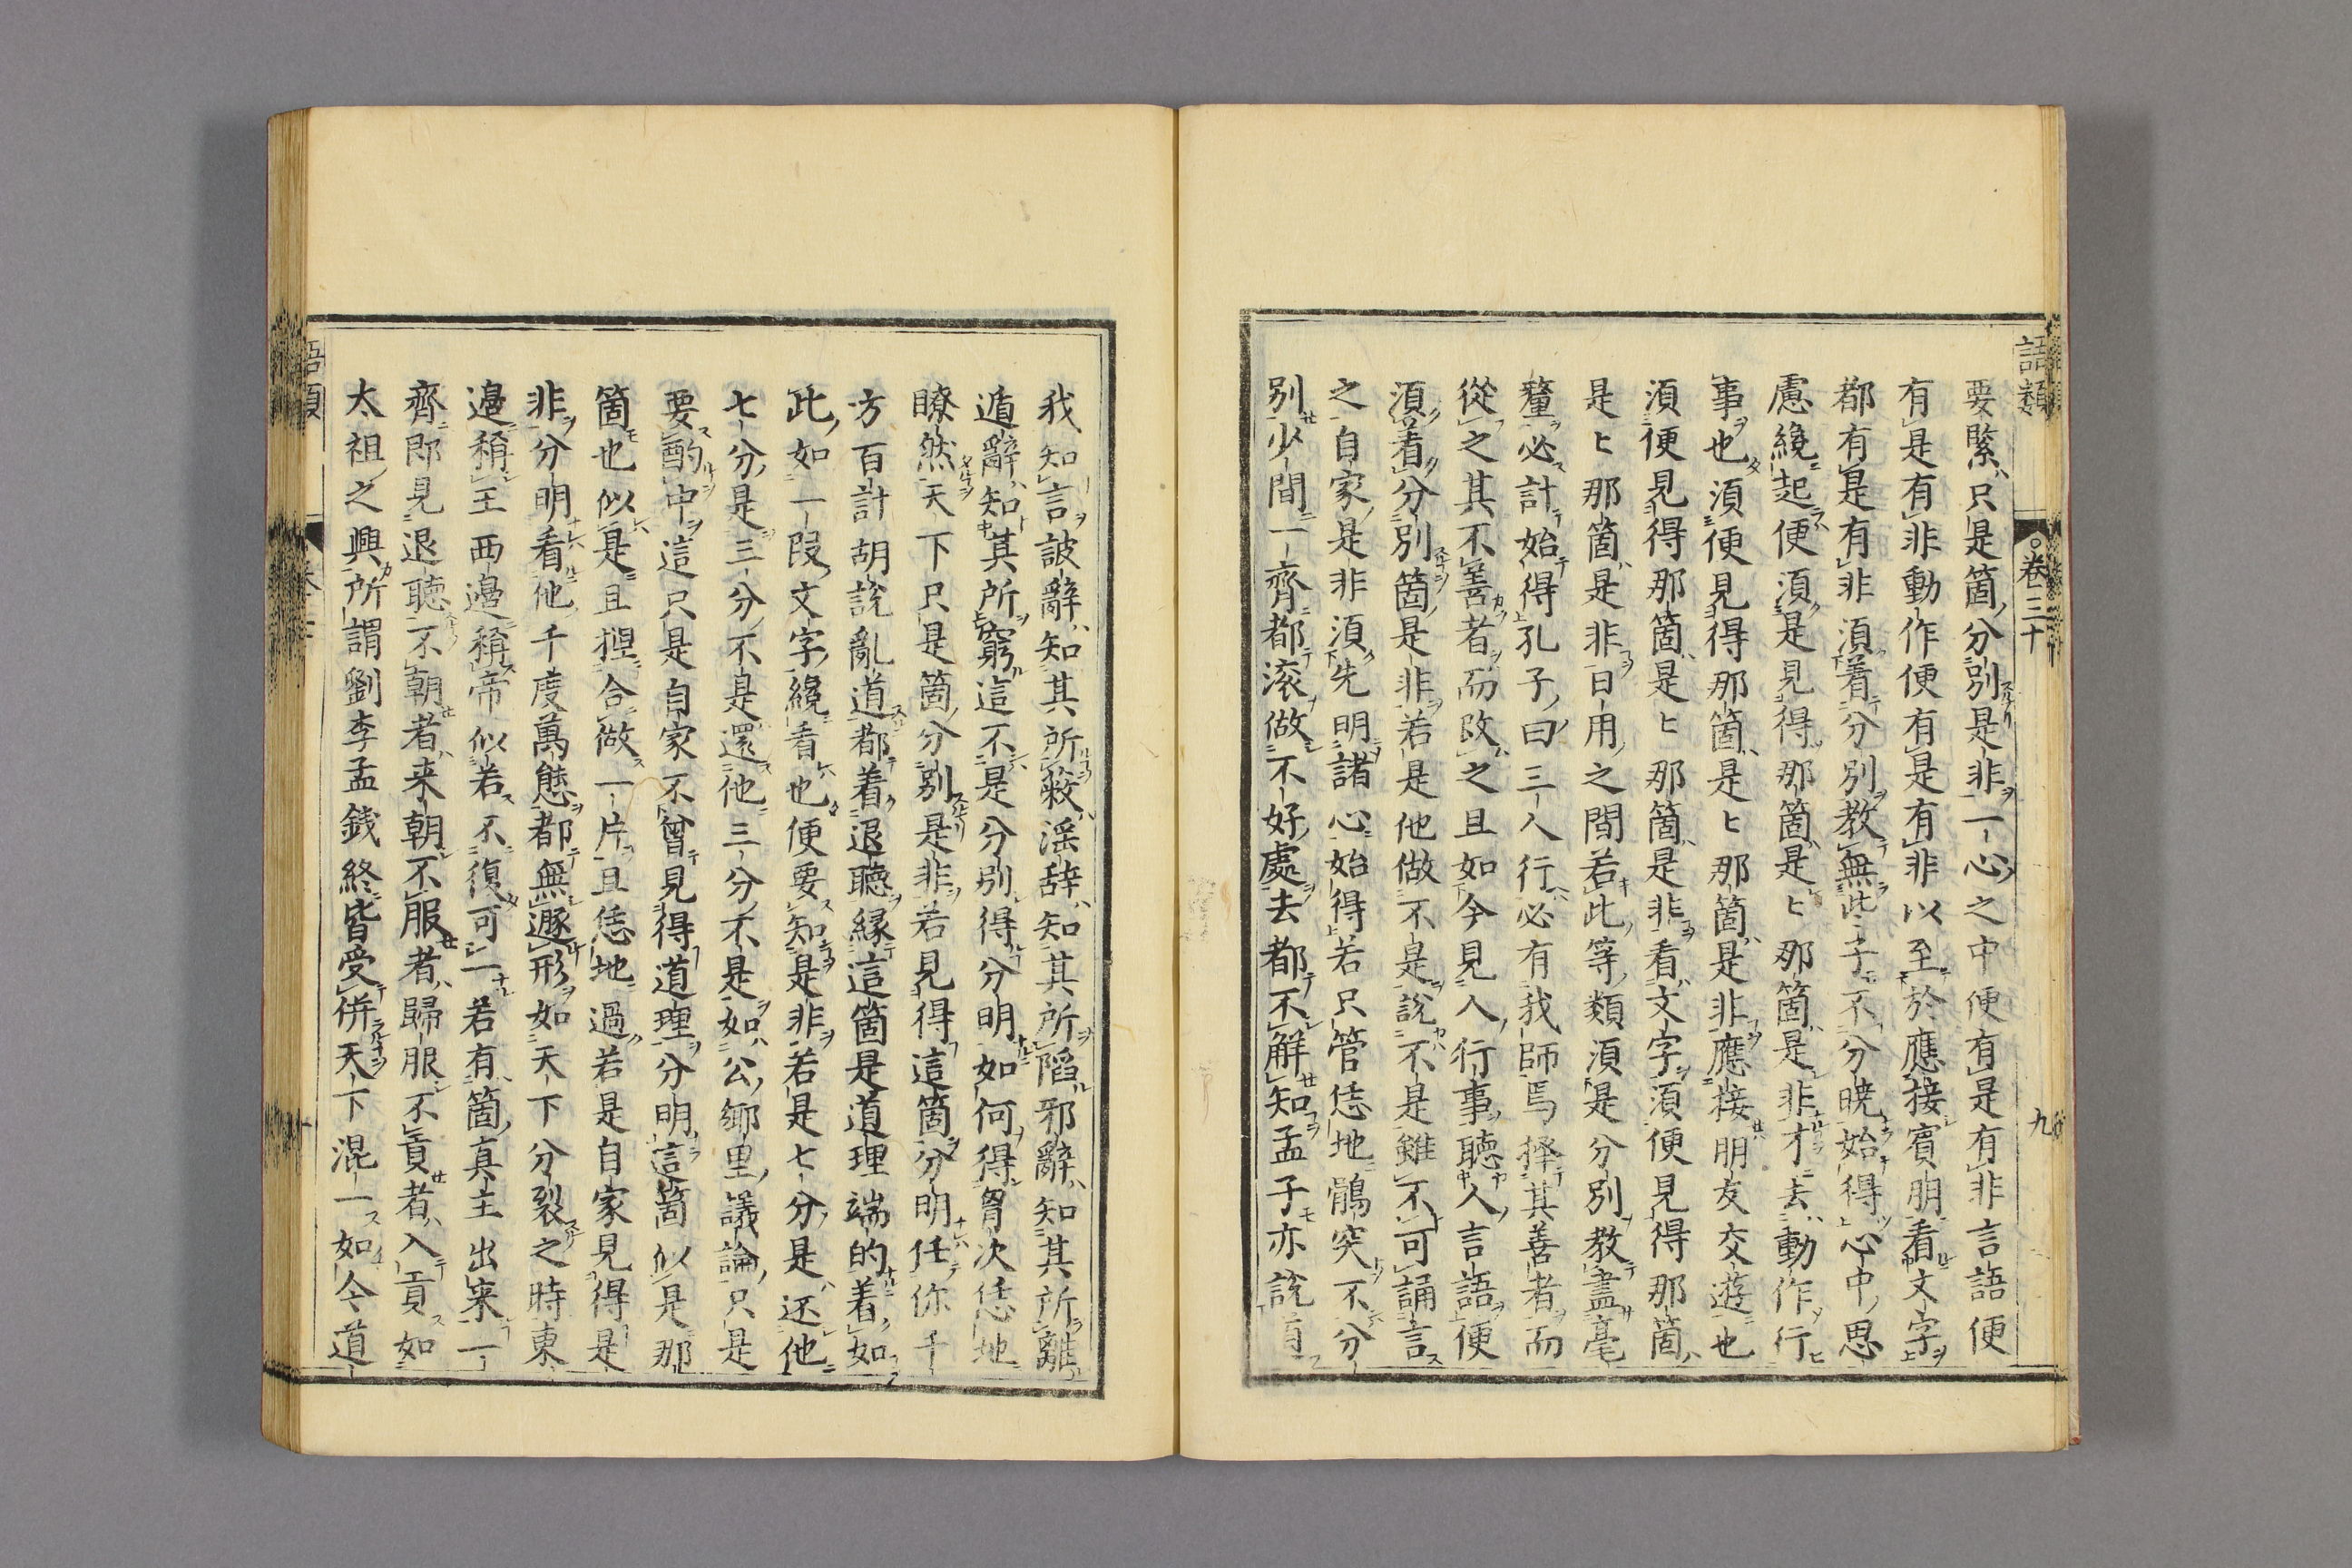 語類
卷三十
九
要緊只是箇分別是非一心之中便有是有非言語便
有是有非動作便有是有非以至於應接賓朋看文字
都有是有非須着分別教無些子不分曉始得心中思
慮纔起便須是見得那箇是ヒ那箇是非才去動作行
事也須便見得那箇是ヒ那箇是非應接朋友交遊也
須便見得那箇是ヒ那箇是非看文字須便見得那箇
是ヒ那箇是非日用之間若此等類須是分別教盡毫
釐必計始得孔子曰三人行必有我師焉擇其善者而
從之其不善者而改之且如今見人行事聽人言語便
須着分別箇是非若是他做不是說不是雖不可誦言
之自家是非須先明諸心始得若只管恁地鶻突不分
別少間一齊都滚做不好處去都不解知孟子亦說道
我知言詖辭知其所蔽淫辞知其所陷邪辭知其所離
遁辭知其所窮這不是分別得分明如何得胷次恁地
瞭然天下只是箇分別是非若見得這箇分明任你千
方百計胡說亂道都着退聽縁這箇是道理端的着如
此如一段文字纔看也便要知是非若是七分是还他
七分是三分不是還他三分不是如公鄉里議論只是
要酌中這只是自家不曾見得道理分明這箇似是那
箇也似是且捏合做一片且恁地過若是自家見得是
非分明看他千度萬態都無遯形如天下分裂之時東
邉稱王西邉稱帝似若不復可一若有箇真主出来一
齊即見退聽不朝者来朝不服者歸服不貢者入貢如
太祖之興所謂劉李孟銭終皆受併天下混一如今道
語類